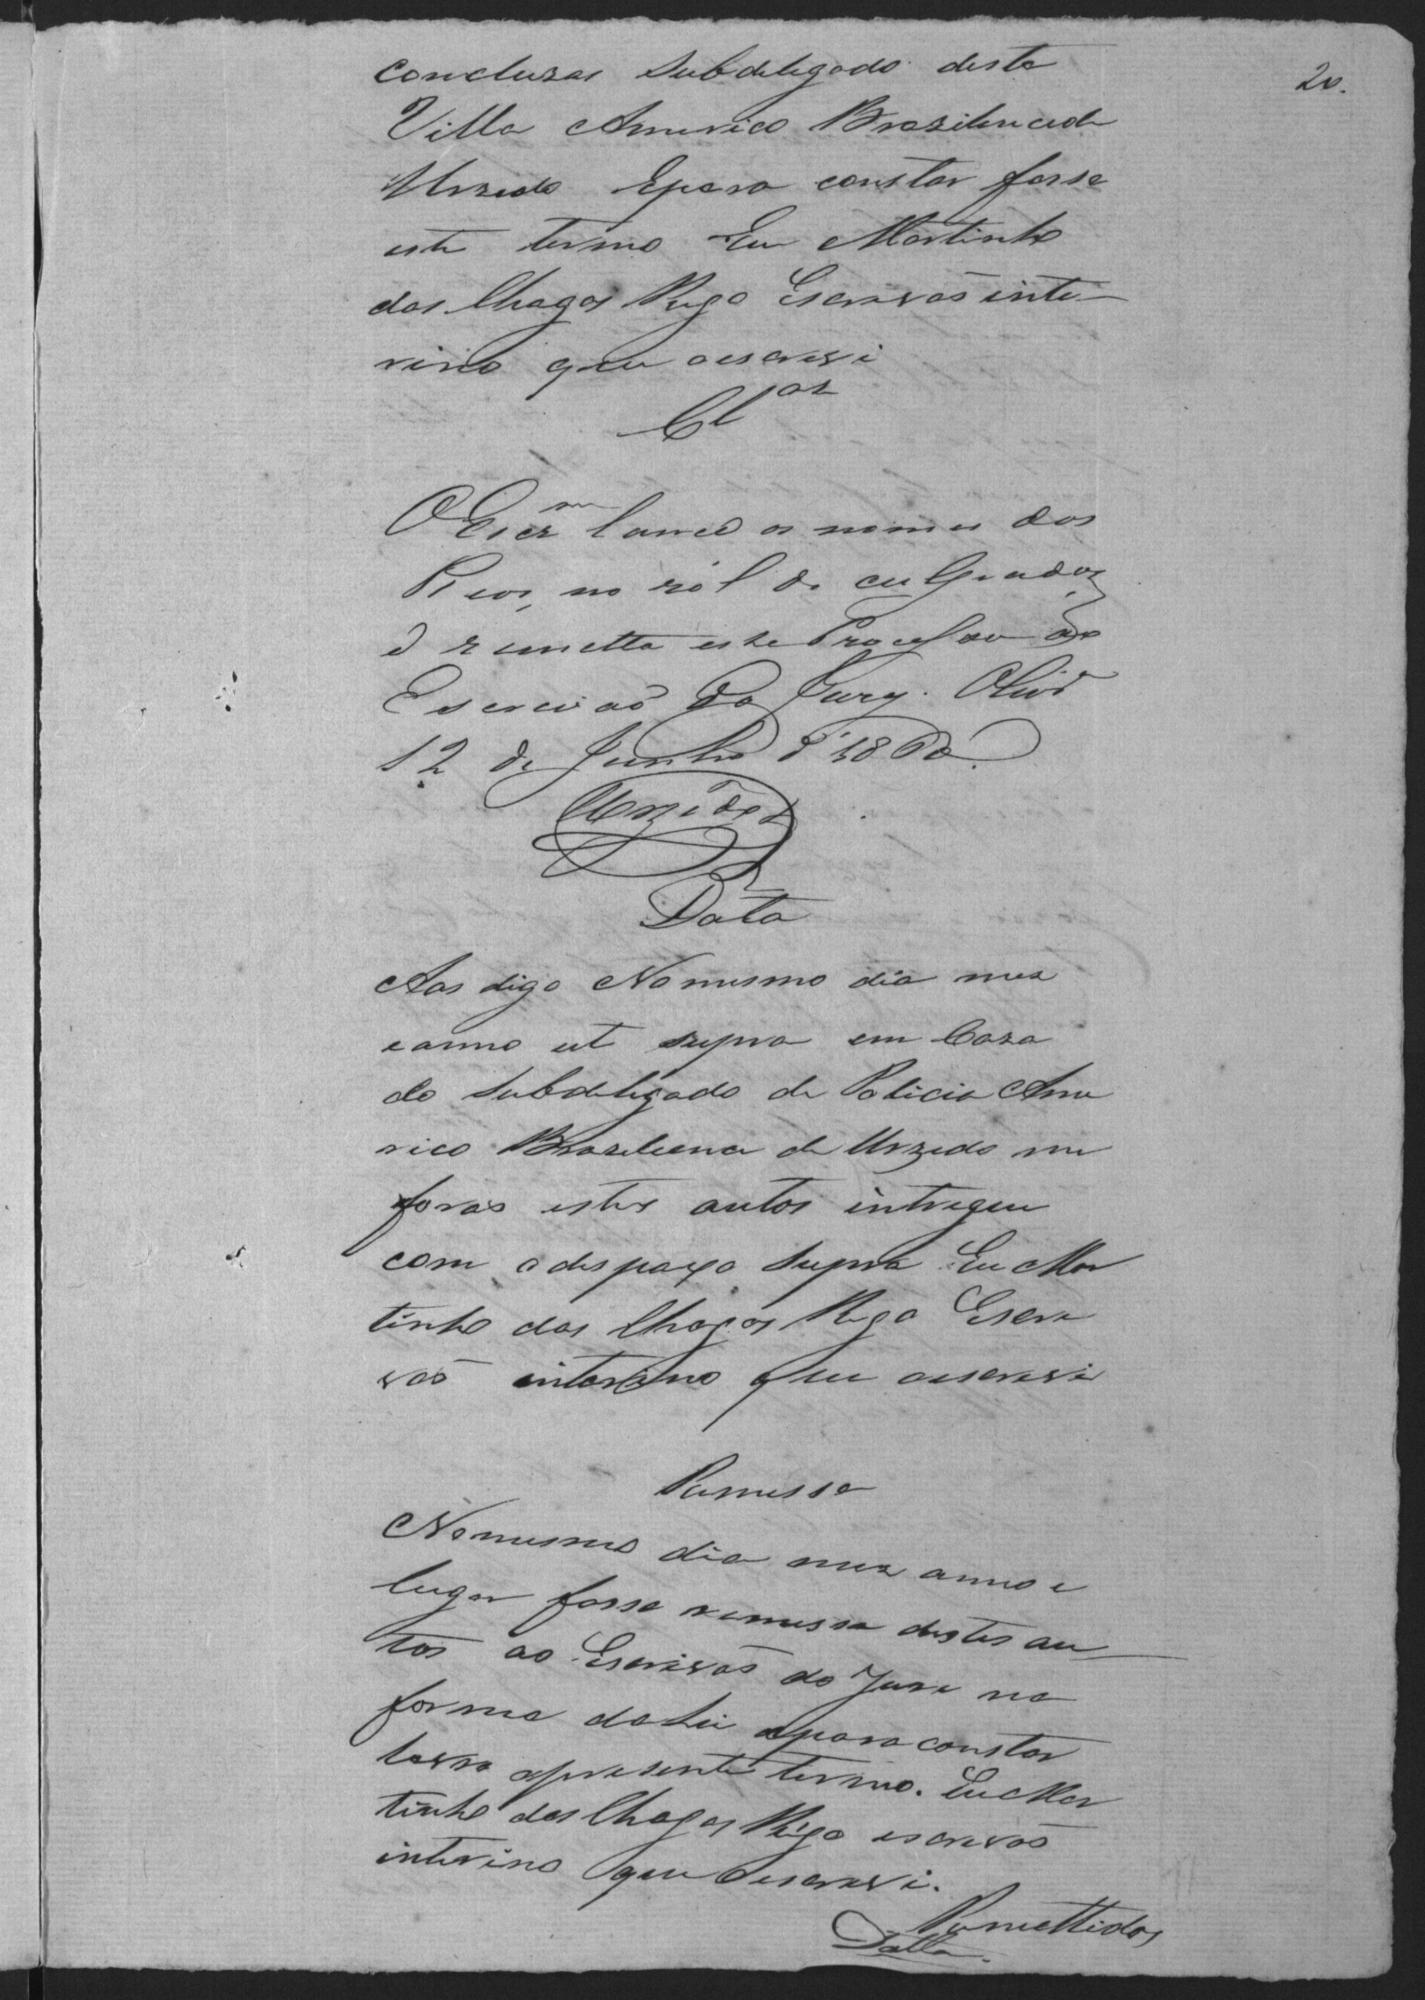 20.
concluzas Subdelegado desta
Villa Americo Braziliencede
Urzedo Epara constar fasso
este termo Eu Martinho
das Chagas Rego Escrivaõ inte-
rino que oescrevi
Clos
O Escr.m lance os nomes dos
Reos, no ról de culpados,
e remetta este Processo ao
Escrivaõ do Jury.
12 de Junho d'1860.
Urzêdo
Data
Aos digo Nomesmo dia mez
eanno ut supra em Caza
do Subdelegado de Policia Ame
rico Brazilience de Urzedo me
foraõ estes autos intregeu
com odespaxo Supra Eu Mar
tinho das Chagas Rego Escri
vaõ interino que oescrevi
Remessa
Nomesmo dia mez anno e
lugar fasso remessa destes au
tos ao Escrivaõ do Jure na
forma daLei epara constar
lavro opresente termo. Eu Mar
tinho das Chagas Rêgo escrivaõ
interino que oescrevi.
Remettidos
Datta.